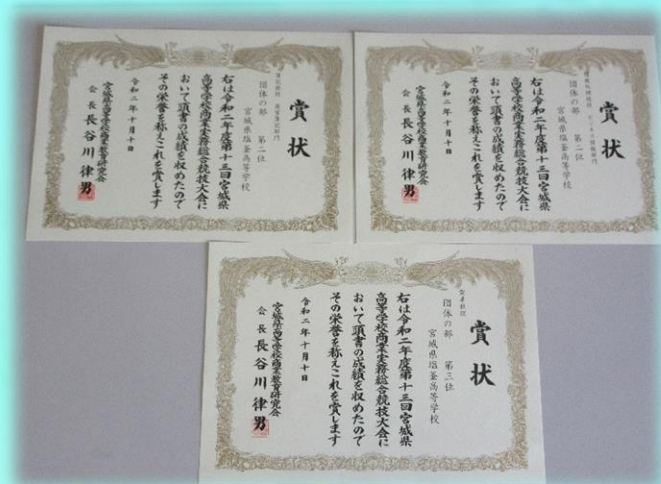 賞状
団体の部 第二位
宮城県塩釜高等学校
右は令和二年度第十三回宮城県
高等学校商業実務総合競技大会に
おいて頭書の成績を収めたので
その栄誉を称えこれを賞します
令和二年十月十日
宮城県高等学校商業教育研究会
会長 長谷川律男
賞状
団体の部 第二位
宮城県塩釜高等学校
右は令和二年度第十三回宮城県
高等学校商業実務総合競技大会に
おいて頭書の成績を収めたので
その栄誉を称えこれを賞します
令和二年十月十日
宮城県高等学校商業教育研究会
会長 長谷川律男
賞状
団体の部 第三位
宮城県塩釜高等学校
右は令和二年度第十三回宮城県
高等学校商業実務総合競技大会に
おいて頭書の成績を収めたので
その栄誉を称えこれを賞します
令和二年十月十日
宮城県高等学校商業教育研究会
会長 長谷川律男